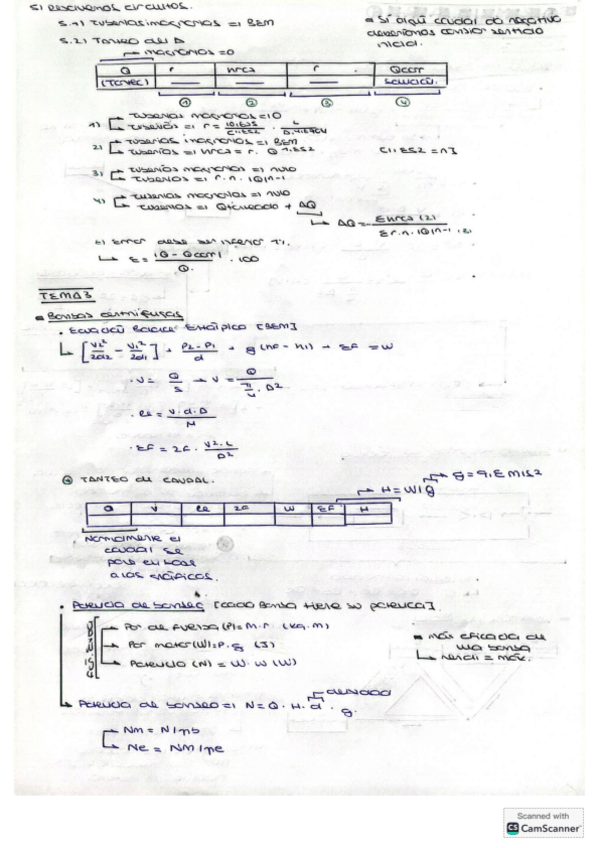 5) Resolvemos circuitos.
5.1) Tuberías imaginarias => BEM
* Si aquí caudal da negativo
deberíamos cambiar sentido
inicial.
5.2) Tanteo del Δ
→ imaginarias = 0
Q (Tanteo) | r | hrcs | r | Qcorr
① ② ③ ④
1) Tuberías imaginarias = 0
Tuberías => r = 10,625 / C^1,852 · L / D^4,8704
2) Tuberías imaginarias => BEM
Tuberías => hrcs = r · Q^1,852
C1,852 = n]
3) Tuberías imaginarias => nulo
Tuberías => r · n · |Q|^n-1
4) Tuberías imaginarias => nulo
Tuberías => Qtanteado + ΔQ
→ ΔQ = - Σ hrcs (2) / Σ r·n·|Q|^n-1 (3)
6) Error debe ser inferior 1%.
→ ε = |Q - Qcorr| / Q · 100
TEMA 3
Bombas centrífugas
· Ecuación Balance Energético [BEM]
→ [V2²/2α2 - V1²/2α1] + P2 - P1 / d + g (h2 - h1) + ΣF = W
· V = Q/S → V = Q / π/4 · D²
· Re = V · d · D / μ
· ΣF = 2F · V² · L / D²
* TANTEO de CAUDAL.
→ H = W/g → g = 9.8 m/s2
Q | V | Re | 2F | W | ΣF | H
Normalmente el
caudal se
pone en base
a las gráficas.
· Potencia de bombeo [cada bomba tiene su potencia].
Por de fuerza (P) = m · r · (kg · m)
Por motor (W) = P · g (J)
Potencia (N) = W · w (W)
* más eficacia de
una bomba
→ rend = máx.
→ Potencia de bombeo => N = Q · H · d · g.
→ densidad
Nm = N / ηb
Ne = Nm / ηe
Scanned with
CS CamScanner